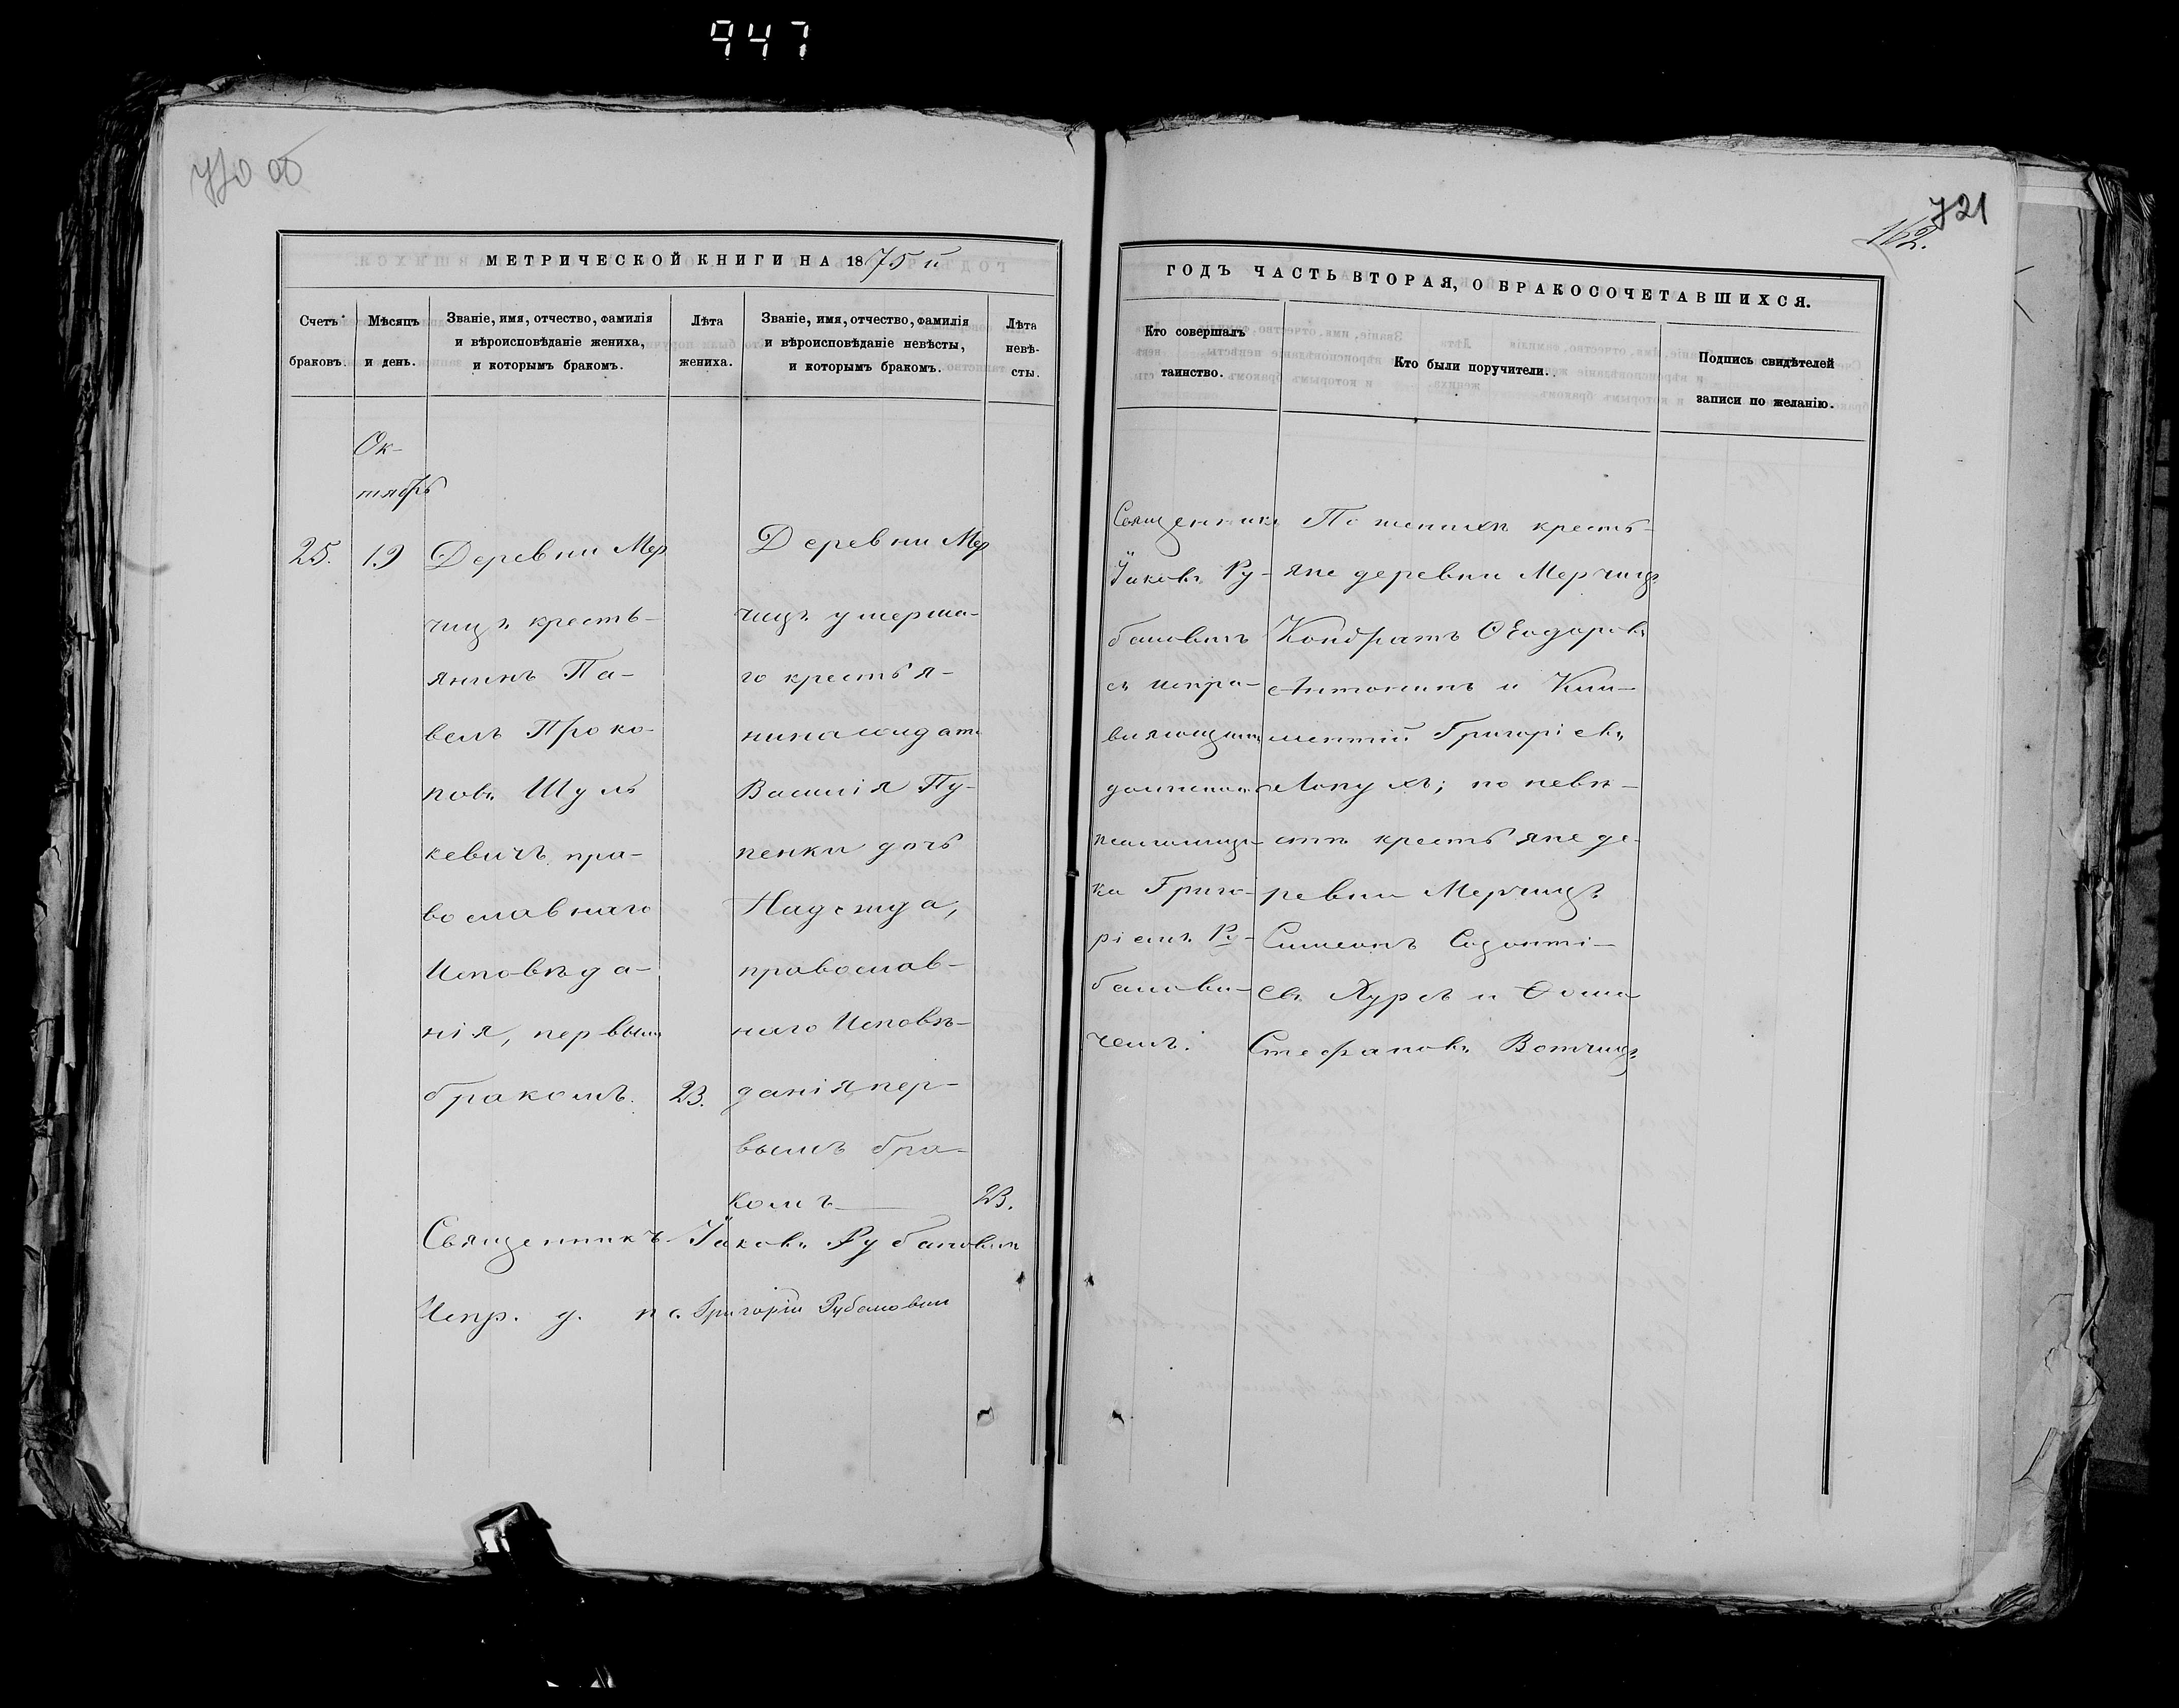 947
720 об
721
162.
МЕТРИЧЕСКОЙ КНИГИ НА 1875 й
Счетъ браковъ.
Мѣсяцъ и день.
Званіе, имя, отчество, фамилія
и вѣроисповѣданіе жениха,
и которымъ бракомъ.
Лѣта жениха.
Званіе, имя, отчество, фамилія
и вѣроисповѣданіе невѣсты,
и которымъ бракомъ.
Лѣта невѣ-
сты.
Ок-
тябрь
25.
19
Деревни Мер
чицъ кресть-
янинъ Па-
велъ Проко-
повъ Шуль
кевичъ, пра-
вославнаго
Исповѣда-
нія, первымъ
бракомъ.
23.
Деревни Мер
чицъ умерша-
го крестья-
нина
Василія Пу-
пенки дочь
Надежда,
православ-
наго Исповѣ-
данія пер-
вымъ бра-
комъ
23.
Священникъ Іаковъ Рубановичъ
Испр. д. пс. Григорій Рубановичъ
ГОДЪ ЧАСТЬ ВТОРАЯ, О БРАКОСОЧЕТАВШИХСЯ.
Кто совершалъ
таинство.
Кто были поручители.
Подпись свидѣтелей
записи по желанію.
Священникъ
Іаковъ Ру-
бановичъ
съ испра-
вляющимъ
должность
псаломщи-
ка Григо-
ріемъ Ру-
банови-
чемъ.
По женихѣ кресть-
яне деревни Мерчицъ
Кондратъ Ѳеодоровъ
Антонинъ и Кли-
ментій Григорievъ
Лопухъ; по невѣ-
стѣ крестьяне де-
ревни Мерчицъ
Симеонъ Созонті-
евъ Курсъ и Ѳома
Стефановъ Вотчицъ